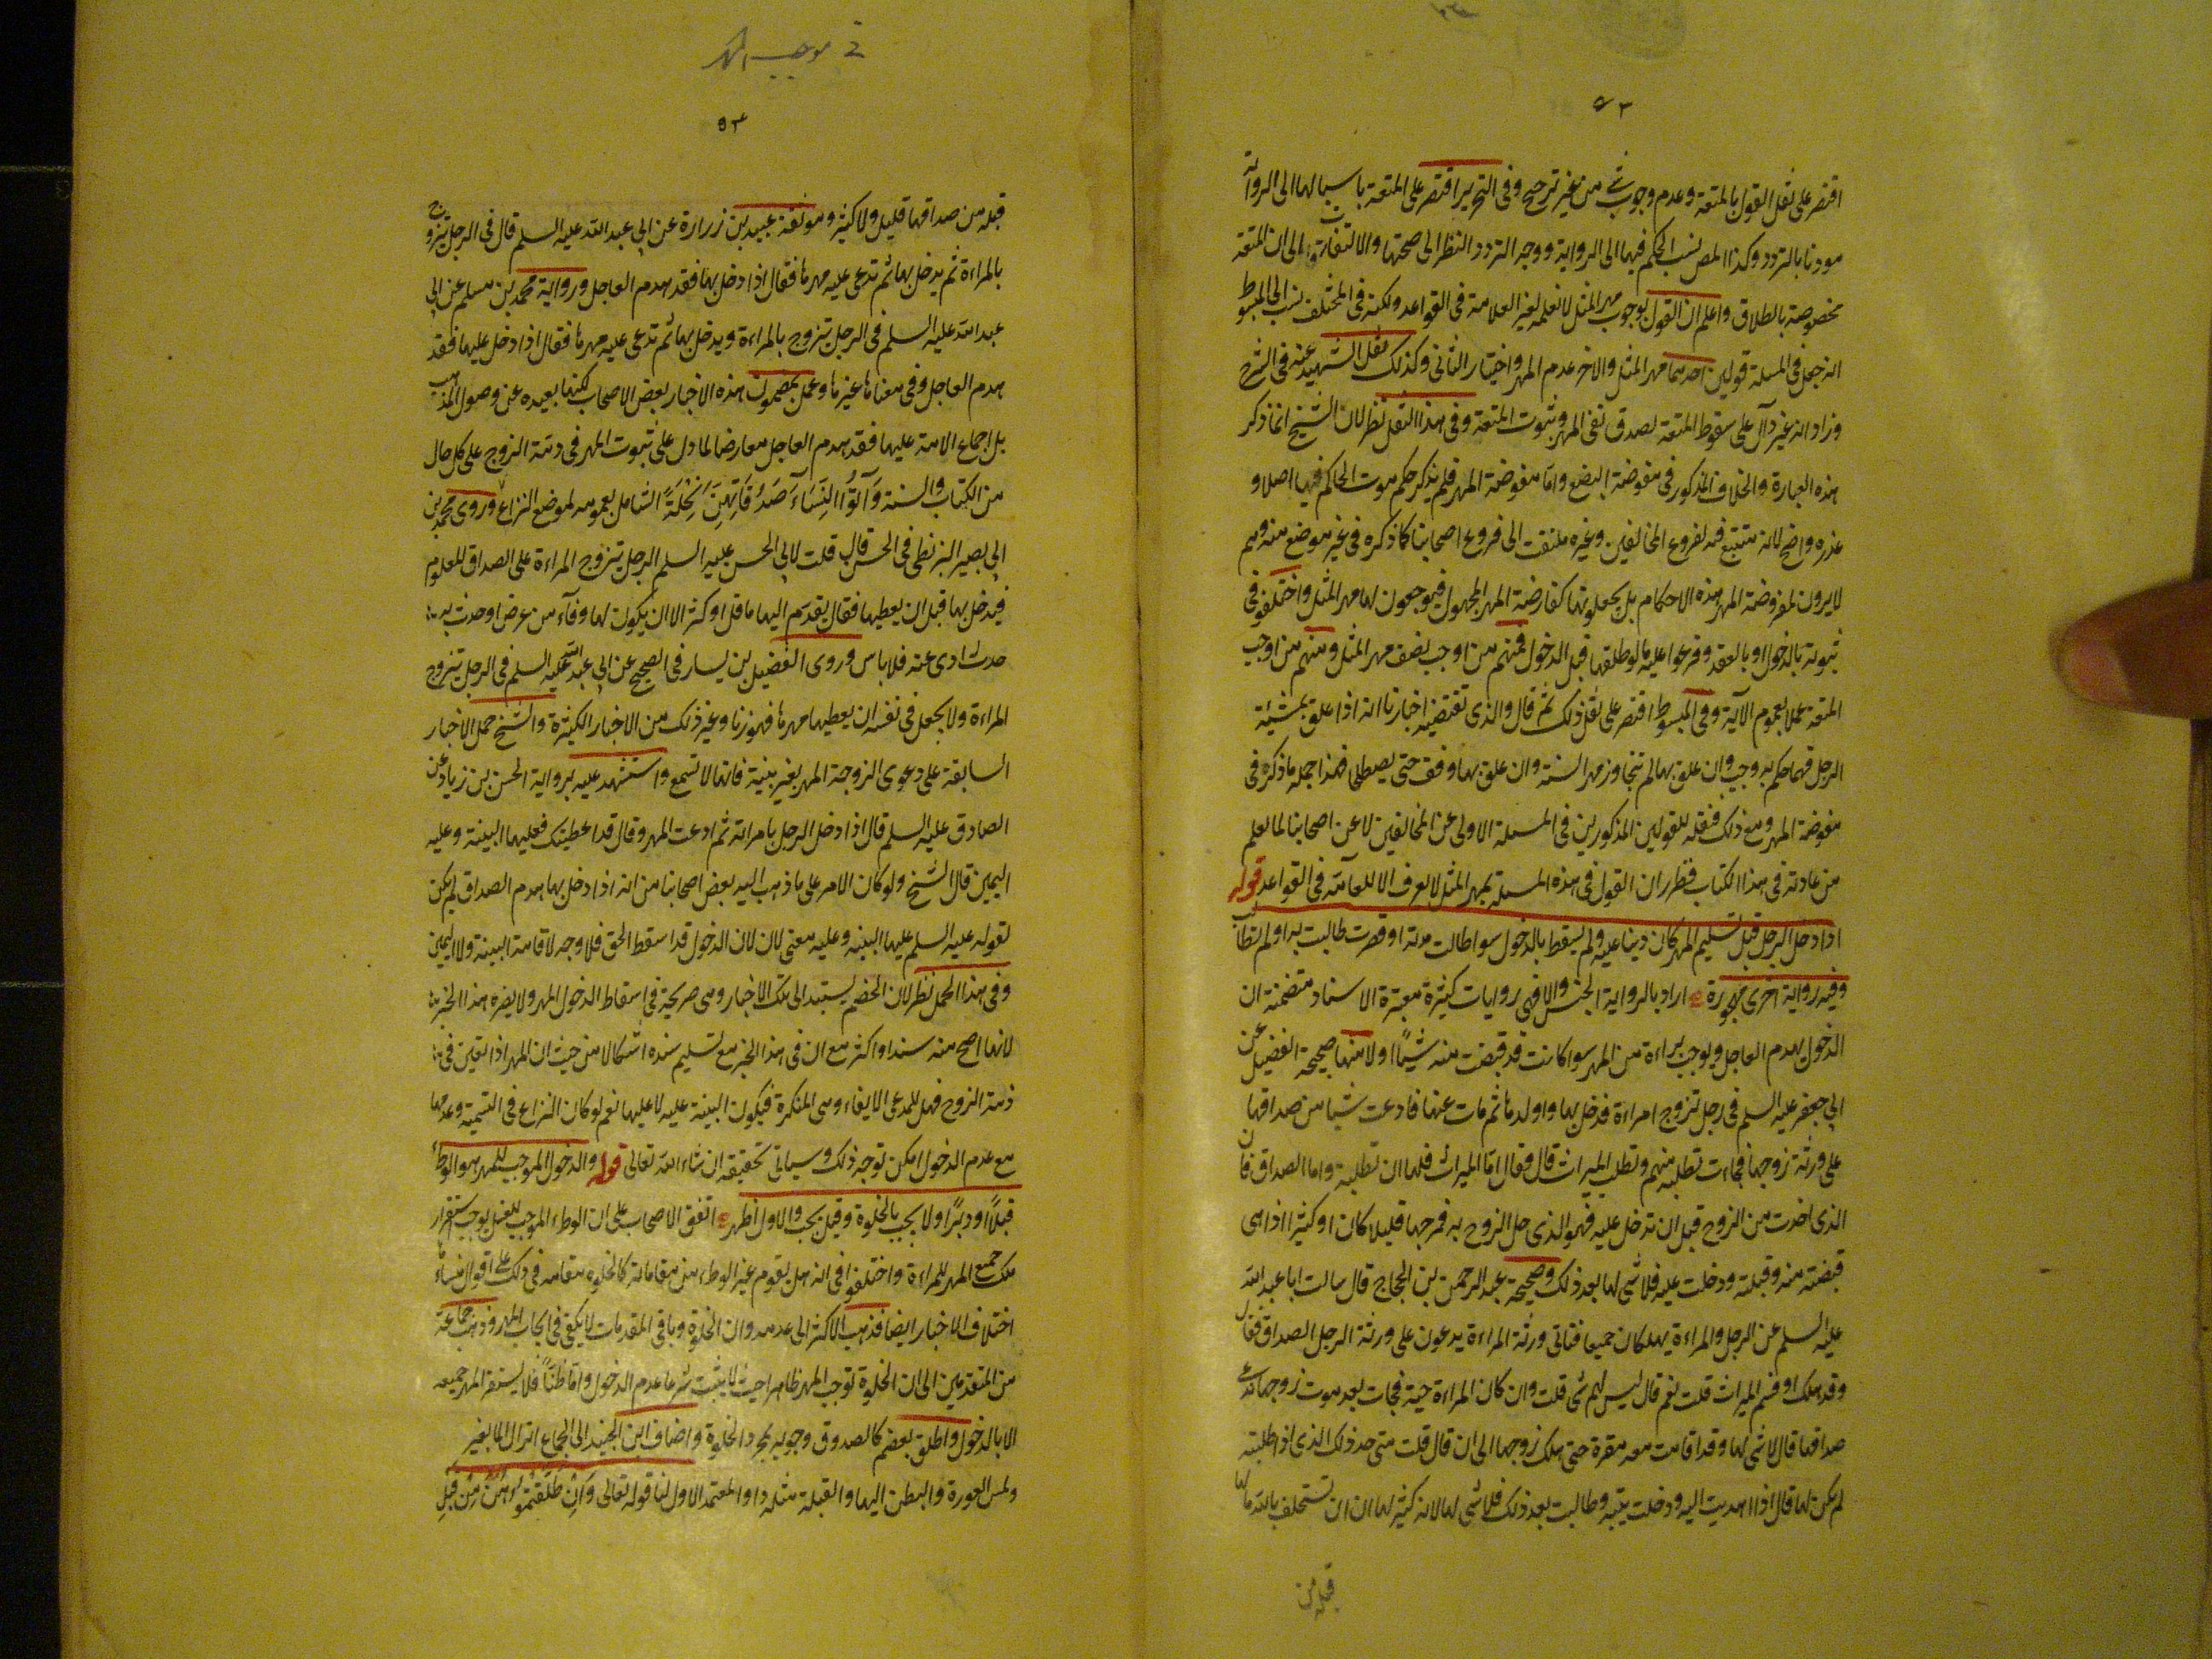 ٤٣
اقتصر على نقل القول بالمتعة وعدم وجوب شئ من غير ترجيح وفى التحرير اقتصر على المتعة ناسبا لها الى الرواية
موذنا بالتردد وكذا المص نسب الحكم فيها الى الرواية ووجه التردد النظر الى صحتها والالتفات الى ان المتعة
مخصوصة بالطلاق واعلم ان القول بوجوب مهر المثل لا نعلمه لغير العلامة فى القواعد ولكنه فى المختلف نسب الى المبسوط
انه جعل فى المسئلة قولين احدهما مهر المثل والاخر عدم المهر واختيار الثانى وكذلك نقل الشهيد عنه فى الشرح
وزاد انه غير دآل على سقوط المتعة لصدق نفى المهر وثبوت المتعة وفى هذا النقل نظر لان الشيخ انما ذكر
هذه العبارة والخلاف المذكور فى مفوضة البضع واما مفوضة المهر فلم يذكر حكم موت الحاكم فيها اصلا و
عذره واضح لانه متتبع فيه لفروع المخالفين وغيره ملتفت الى فروع اصحابنا كما ذكره فى غير موضع منه وهم
لا يرون لمفوضة المهر هذه الاحكام بل يجعلونها كفارضة المهر المجهول فيوجبون لها مهر المثل واختلفوا فى
ثبوته بالدخول او بالعقد وفرعوا عليه ما لو طلقها قبل الدخول فمنهم من اوجب نصف مهر المثل ومنهم من اوجب
المتعة عملا بعموم الآية وفى المبسوط اقتصر على نقل ذلك ثم قال والذى تقتضيه اخبارنا انه اذا علق بمشيئة
الرجل فمهما حكم به وجب وان علق بها لم تتجاوز مهر السنة وان علق بهما وقف حتى يصطلحا فهذا جملة ما ذكره فى
مفوضة المهر ومع ذلك فنقله للقولين المذكورين فى المسئلة الاولى عن المخالفين لا عن اصحابنا لما يعلم
من عادته فى هذا الكتاب فظهر ان القول فى هذه المسئلة بمهر المثل لا يعرف الا للعلامة فى القواعد قوله
اذا دخل الرجل قبل تسليم المهر كان دينا عليه ولم يسقط بالدخول سوا طالت مدتها او قصرت طالبت به او لم تطالب
وفيه رواية اخرى مهجورة اراد بالرواية الجنس والا فهى روايات كثيرة معتبرة الاسناد متضمنة ان
الدخول يهدم العاجل ويوجب براءة من المهر سوا كانت قد قبضت منه شيئا اولا منها صحيحة الفضيل عن
ابى جعفر عليه السلم فى رجل تزوج امراءة فدخل بها واولدها ثم مات عنها فادعت شيئا من صداقها
على ورثة زوجها فجاءت تطلبه منهم وتطلب الميراث قال فقال اما الميراث فلها ان تطلبه واما الصداق فان
الذى اخذت من الزوج قبل ان تدخل عليه فهو الذى حل الزوج به فرجها قليلا كان او كثيرا اذا هى
قبضته منه وقبلته ودخلت عليه فلا شى لها بعد ذلك وصحيحة عبد الرحمن بن الحجاج قال سالت ابا عبد الله
عليه السلم عن الرجل والمراءة يهلكان جميعا فتاتى ورثة المراءة يدعون على ورثة الرجل الصداق فقال
وقد هلك او قسم الميراث قلت نعم قال ليس لهم شى قلت وان كان المراءة حية فجات بعد موت زوجها تدعى
صداقها قال لا شى لها وقد اقامت معه مقرة حتى هلك زوجها الى ان قال قلت متى حد ذلك الذى اذا طلبته
لم يكن لها قال اذا اهديت اليه ودخلت بيته وطالبت بعد ذلك فلا شى لها لانه كثير لها ان تستحلف بالله مالها
قبله من
فى موجب المهر
٥٣
قبله من صداقها قليل ولا كثير وموثقة عبيد بن زرارة عن ابى عبد الله عليه السلم قال فى الرجل يتزوج
بالمراءة ثم يدخل بها ثم تدعى عليه مهرها فقال اذا دخل بها فقد هدم العاجل ورواية محمد بن مسلم عن ابى
عبد الله عليه السلم فى الرجل يتزوج بالمراءة ويدخل بها ثم تدعى عليه مهرها فقال اذا دخل عليها فقد
هدم العاجل وفى معناها غيرها وعمل بمضمون هذه الاخبار بعض الاصحاب لكنها بعيده عن وصول المذهب
بل اجماع الامة عليها فقد هدم العاجل معارضا لما دل على ثبوت المهر فى ذمة الزوج على كل حال
من الكتاب والسنة وَآتُوا النِّسَآءَ صَدُقَاتِهِنَّ نِحْلَةً الشامل بعمومه لموضع النزاع وروى محمد بن
ابى بصير البزنطى فى الحسن قال قلت لابى الحسن عليه السلم الرجل يتزوج المراءة على الصداق المعلوم
فيدخل بها قبل ان يعطيها فقال يقدم اليها ما قل او كثر الا ان يكون لها وفآء من عرض او حدث به
حدث ادى عنه فلا باس وروى الفضيل بن يسار فى الصحيح عن ابى عبد الله عليه السلم فى الرجل يتزوج
المراءة ولا يجعل فى نفسه ان يعطيها مهرها فهو زنا وغير ذلك من الاخبار الكثيرة والشيخ حمل الاخبار
السابقة على دعوى الزوجة المهر بغير بينة فانها لا تسمع واستشهد عليه برواية الحسن بن زياد عن
الصادق عليه السلم قال اذا دخل الرجل بامراته ثم ادعت المهر وقال قد اعطيتك فعليها البينة وعليه
اليمين قال الشيخ ولو كان الامر على ما ذهب اليه بعض اصحابنا من انه اذا دخل بها هدم الصداق لم يكن
لقوله عليه السلم عليها البينه وعليه معنى لان لان الدخول قد اسقط الحق فلا وجه لاقامة البينة ولا اليمين
وفى هذا الحمل نظر لان الخصم يستند الى تلك الاخبار وهى صريحة فى اسقاط الدخول المهر ولا يضره هذا الخبر
لانها اصح منه سندا واكثر مع ان فى هذا الخبر مع تسليم سنده اشكالا من حيث ان المهر اذا تعين فى
ذمة الزوج فهل للمدعى الايفاء وهى المنكرة فيكون البينة عليه لا عليها نعم لو كان النزاع فى التسمية وعدمها
مع عدم الدخول امكن توجه ذلك وسياتى تحقيقه ان شاء الله تعالى قوله والدخول الموجب للمهر هو الوطء
قبلًا او دبرًا ولا يجب بالخلوة وقيل يجب والاول اظهر اتفق الاصحاب على ان الوطء الموجب للغسل يوجب استقرار
ملك جميع المهر للمراءة واختلفوا فى انه هل يقوم غير الوطء من مقاماته كالخلوة مقامه فى ذلك على اقوال منشأه
اختلاف الاخبار ايضا فذهب الاكثر الى عدمه وان الخلوة وباقى المقدمات لا يكفى فى ايجاب المهر وذهب جماعة
من المتقدمين الى ان الخلوة توجب المهر ظاهرا حيث لا يثبت شرعا عدم الدخول واما باطنًا فلا يستقر المهر جميعه
الا بالدخول واطلق بعضهم كالصدوق وجوبه بمجرد الخلوة واضاف ابن الجنيد الى الجماع انزال الماء بغير
ولمس العورة والنظر اليها والقبلة متلذذا والمعتمد الاول لنا قوله تعالى وَاِنْ طَلَّقْتُمُوهُنَّ مِنْ قَبْلِ